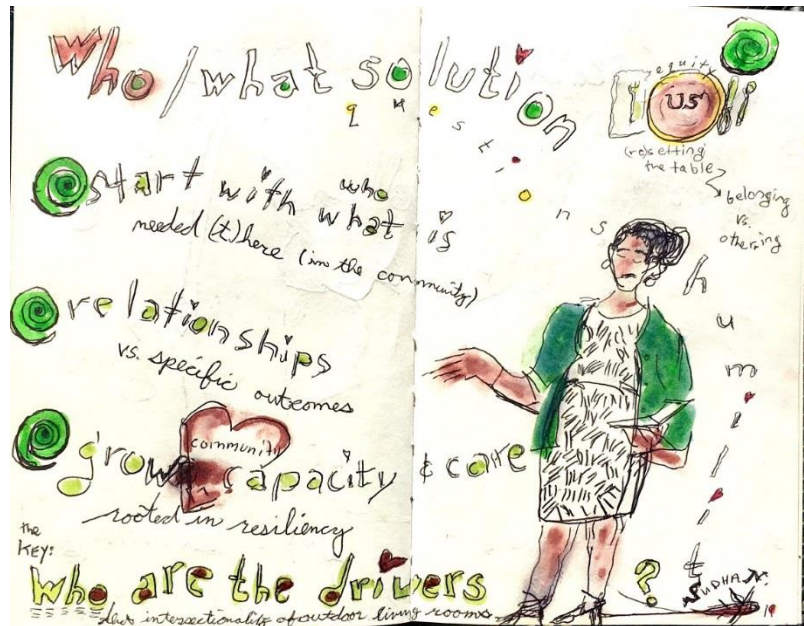 who/what solution
questions
equity
us
(re)setting
the table
belonging
vs.
othering
start with what is
who
needed (t)here (in the community)
humility
relationships
vs. specific outcomes
community
grow capacity & care
rooted in resiliency
the
KEY:
who are the drivers ?
intersectionality of outdoor living rooms
19